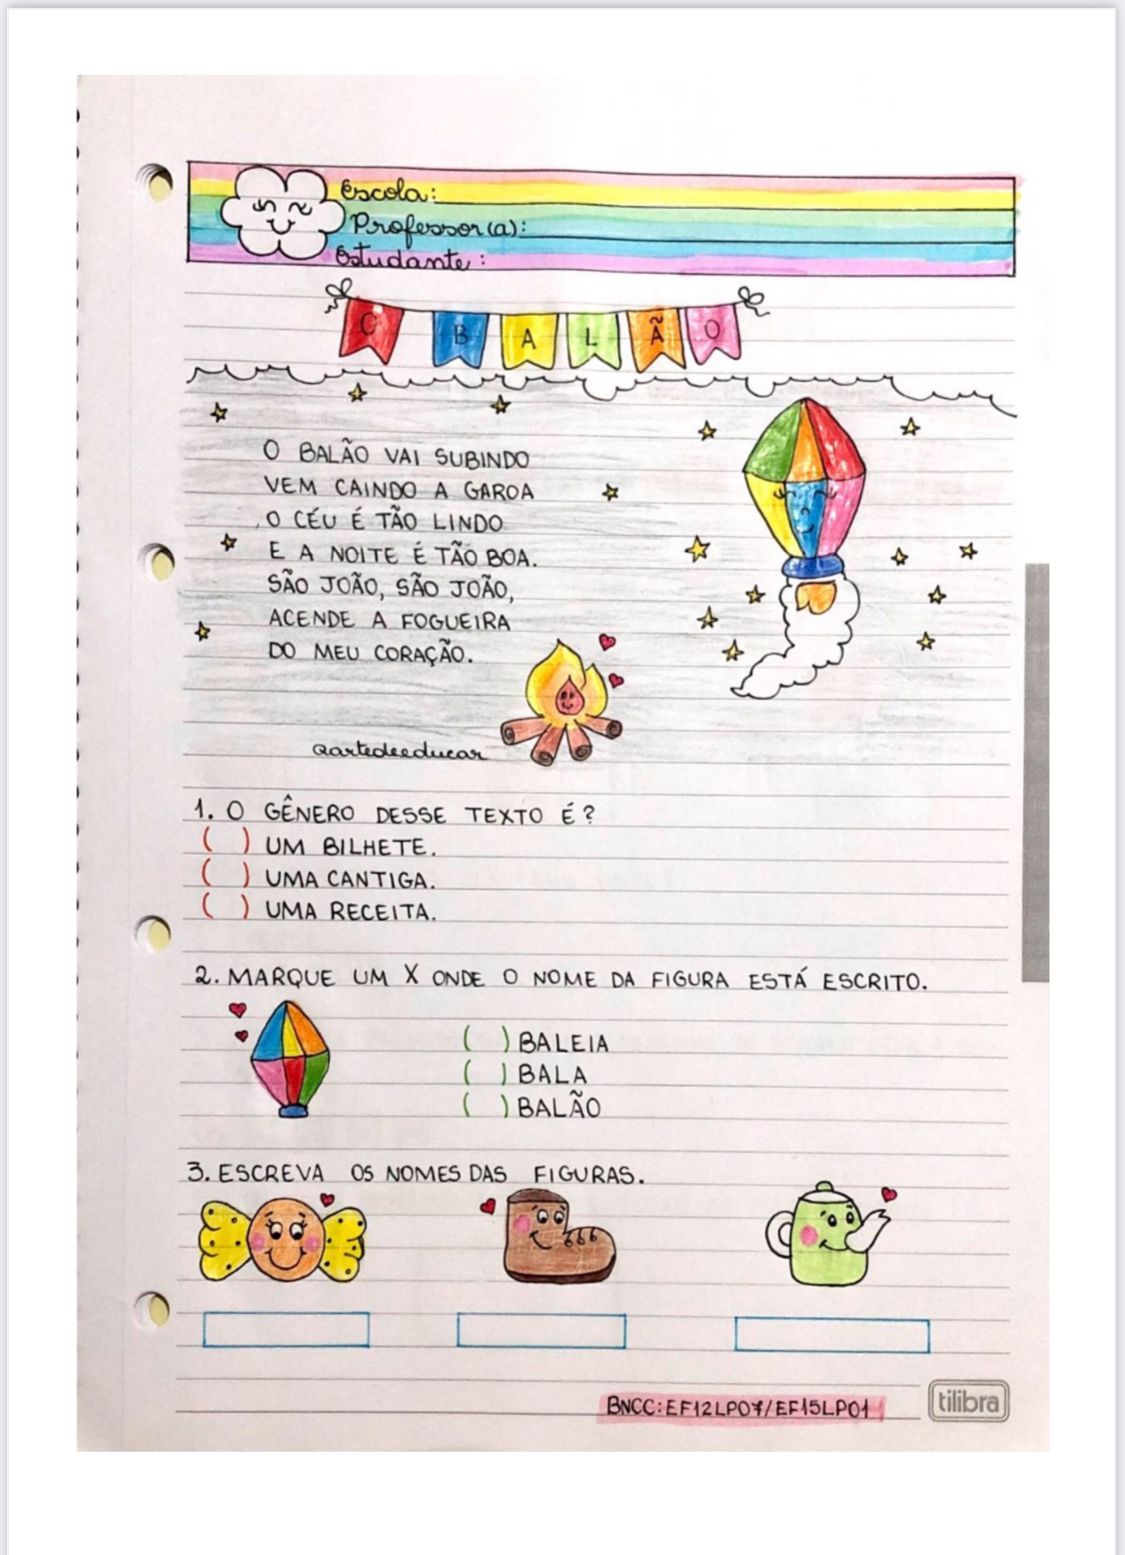 Escola:
Professor(a):
Estudante:
O BALÃO
O BALÃO VAI SUBINDO
VEM CAINDO A GAROA
O CÉU É TÃO LINDO
E A NOITE É TÃO BOA.
SÃO JOÃO, SÃO JOÃO,
ACENDE A FOGUEIRA
DO MEU CORAÇÃO.
@artedeeducar
1. O GÊNERO DESSE TEXTO É?
( ) UM BILHETE.
( ) UMA CANTIGA.
( ) UMA RECEITA.
2. MARQUE UM X ONDE O NOME DA FIGURA ESTÁ ESCRITO.
( ) BALEIA
( ) BALA
( ) BALÃO
3. ESCREVA OS NOMES DAS FIGURAS.
BNCC: EF12LP07/EF15LP01
tilibra